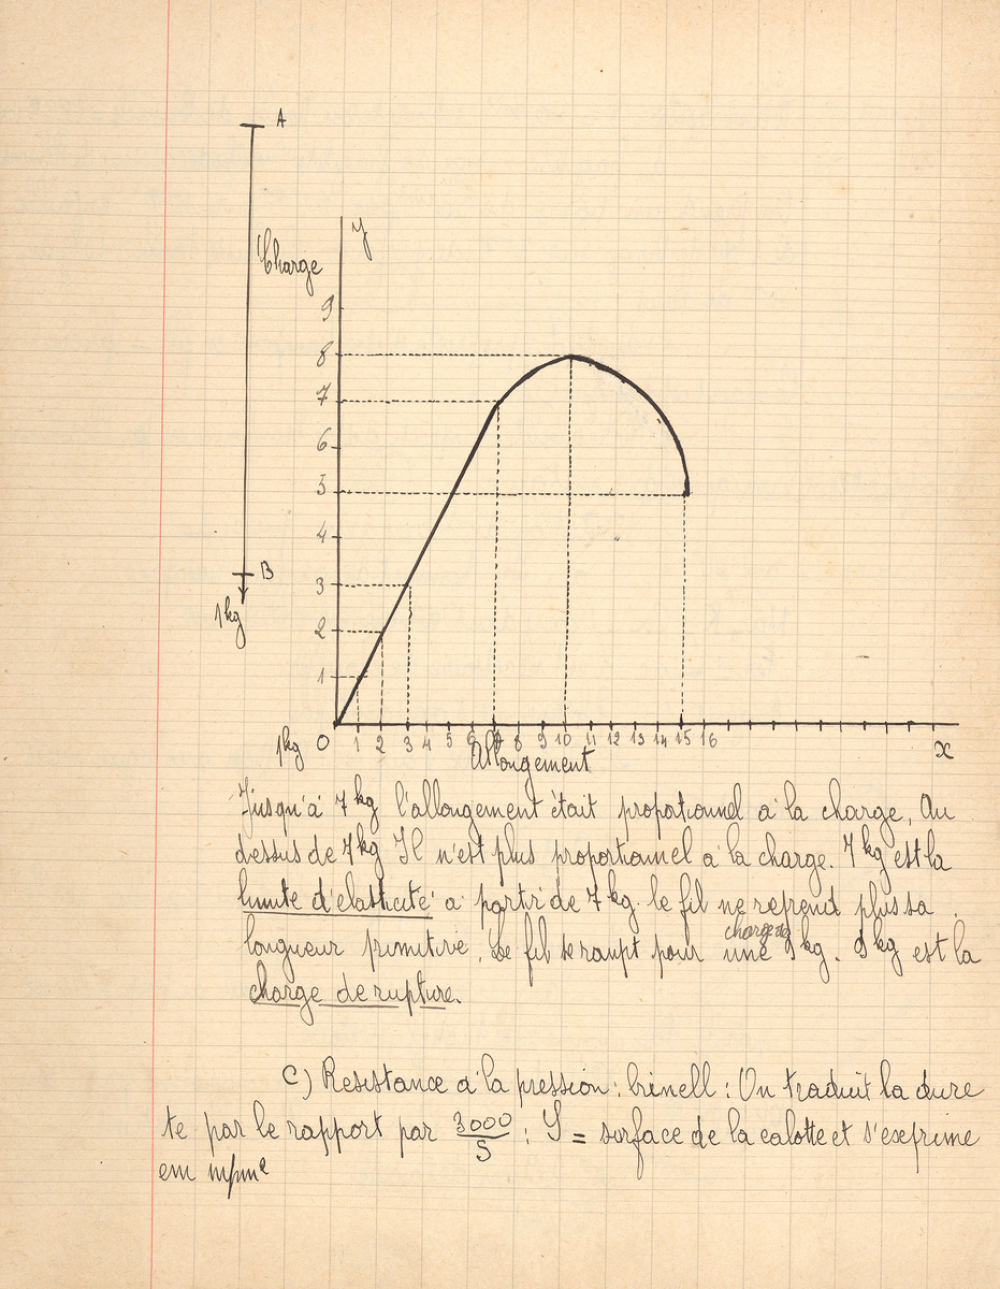 A
y
Charge
9
8
7
6
5
4
3
2
1
B
1kg
1kg 0 1 2 3 4 5 6 7 8 9 10 11 12 13 14 15 16 x
Allongement
Jusqu'à 7 kg l'allongement était propotionnel a la charge. Au
dessus de 7kg Il n'est plus proportionnel a la charge. 7 kg est la
limite d'élasticité a partir de 7 kg. le fil ne reprend plus sa
longueur primitive. Le fil se rompt pour une charge 9 kg. 9 kg est la
charge de rupture.
C) Resistance a la pression : brinell : On traduit la dure
te par le rapport par 3000/S : S = surface de la calotte et s'exprime
em m/m²